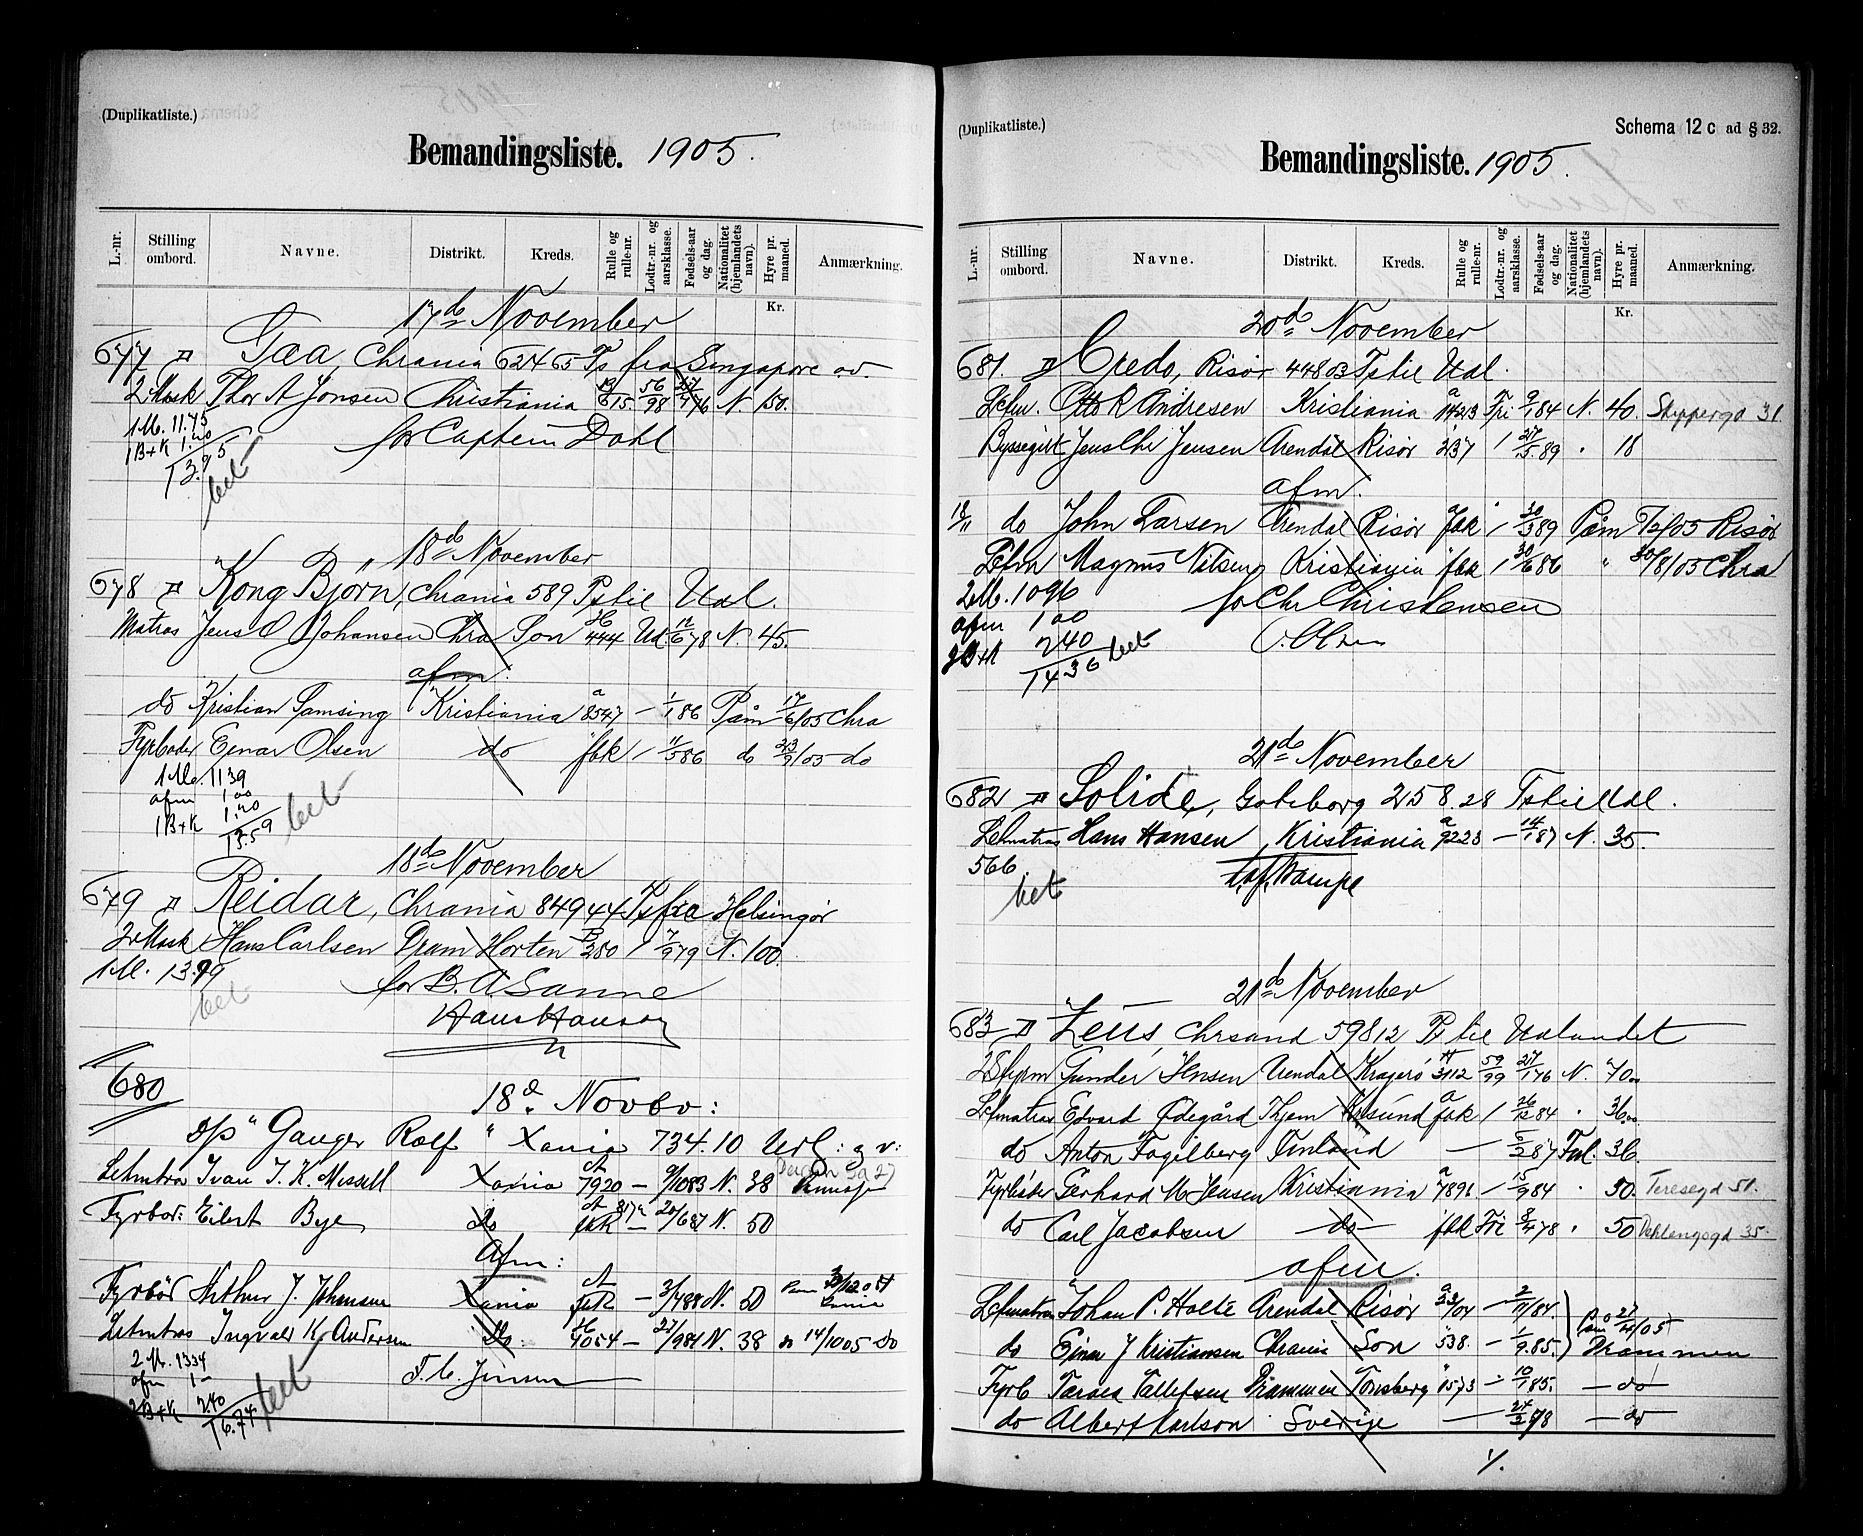 (Duplikatliste.)
Bemandingsliste. 1905.
L.-nr.
Stilling ombord.
Navne.
Distrikt.
Kreds.
Rulle og rulle-nr.
Lodtr.-nr. og aarsklasse.
Fødsels-aar og dag.
Nationalitet (hjemlandets navn).
Hyre pr. maaned.
Anmærkning.
Kr.
17de November
677 Gaa, Chrania 624 65 Ts fra Singapore ov.
2 Mask Thor A Jonsen Christiania B 615 56/98 76 N 150.
1 M. 11.75 for Captein Dahl
1 B+K 1.20
13.95
bet
18de November
678 D "Kong Bjørn", Chrania 589 Ts til Udl.
Matros Jens O Johansen Chra Son H 444 Ud 12/6 78 N. 45.
afm.
do Kristian Samsing Kristiania a 8547 - 1/1 86 Påm 17/6/05 Chra
Fyrbøder Einar Olsen do fbk 1 11/5 86 do 23/9/05 do
1 M. 11 39
afm 1 00
1 B+K 1.20
13.59
bet
18de November
679 D Reidar, Chrania 849 44 Ts fra Helsingør
2 Mask Hans Carlsen Dram Horten B 280 1 7/9 79 N. 100.
1 M. 13.99 for B. A Sanne
bet
Hans Hansen
680
18d Novbr:
d/s "Ganger Rolf" Xania 734.10 Udl: g v:
Letmtrs Ivar J. K. Messell Xania A 7920 - 9/10 83 N. 38
Fyrbød: Eilert Bye do A fbk - 20/6 87 N. 50
Afm:
Fyrbød Arthur J. Johansen Xania A fbk - 3/7 88 N. 50
Letmtros Ingvald Kr Andersen do: H 4054 - 27/9 84 N. 38 do 14/10 05 do
2 M. 1334
afm 1 -
2 B+K 2.40
16.74
bet
(Duplikatliste.)
Schema 12 c ad § 32.
Bemandingsliste. 1905.
L.-nr.
Stilling ombord.
Navne.
Distrikt.
Kreds.
Rulle og rulle-nr.
Lodtr.-nr. og aarsklasse.
Fødsels-aar og dag.
Nationalitet (hjemlandets navn).
Hyre pr. maaned.
Anmærkning.
Kr.
20de November
681 D Credo, Risør 448 03 Ts til Udl.
Otto R Andresen Kristiania a 1423 Fri 9/1 84 N. 40. Skippergd 31
Byssegut Jens Chr Jensen Arendal Risør 237 1 27/5 89 " 18
afm.
18/11 do John Larsen Arendal Risør fbk 1 30/3 89 Påm 7/2/05 Risør
Magnus Nilsen Kristiania fbk 1 30/6 86 " 30/8/05 Chra
2 M. 1096 for Chr Christensen
afm 1 00 O. Olsen
2 B+K 2 40
14 36 bet
21de November
682 D Solide, Goteborg 258.28 Ts til Udl.
Letmatros Hans Hansen Kristiania a 9223 - 14/1 87 N. 35.
566
bet
21de November
683 D "Zeus", Chrsand 598 12 Ts til Udlandet
2 Styrm Gunder Jensen Arendal Kragerø A 3112 59/99 27/1 76 N. 70.
Letmatros Edvard Ødegård Thjem Krsund a fbk 1 26/12 84 " 36.
do Anton Fagilberg Finland - 5/2 87 Finl. 36.
Fyrbøder Gerhard M Jensen Kristiania a 7896 - 15/9 84 " 50. Teresegd 51.
do Carl Jacobsen - do - fbk Fri 8/4 78 " 50 Dahlengsgd 35.
afm.
Letmatros Johan P. Holte Arendal Risør 2/11 84.
do Einar J Kristiansen Chrania Son 538. - 1/9 85. Påm 27/4/05 Drammen
Fyrb Tarald Tallefsen Drammen Tønsberg 1573 - 10/1 85. - do
do Albert Karlson Sverige - 24/2 78 - do